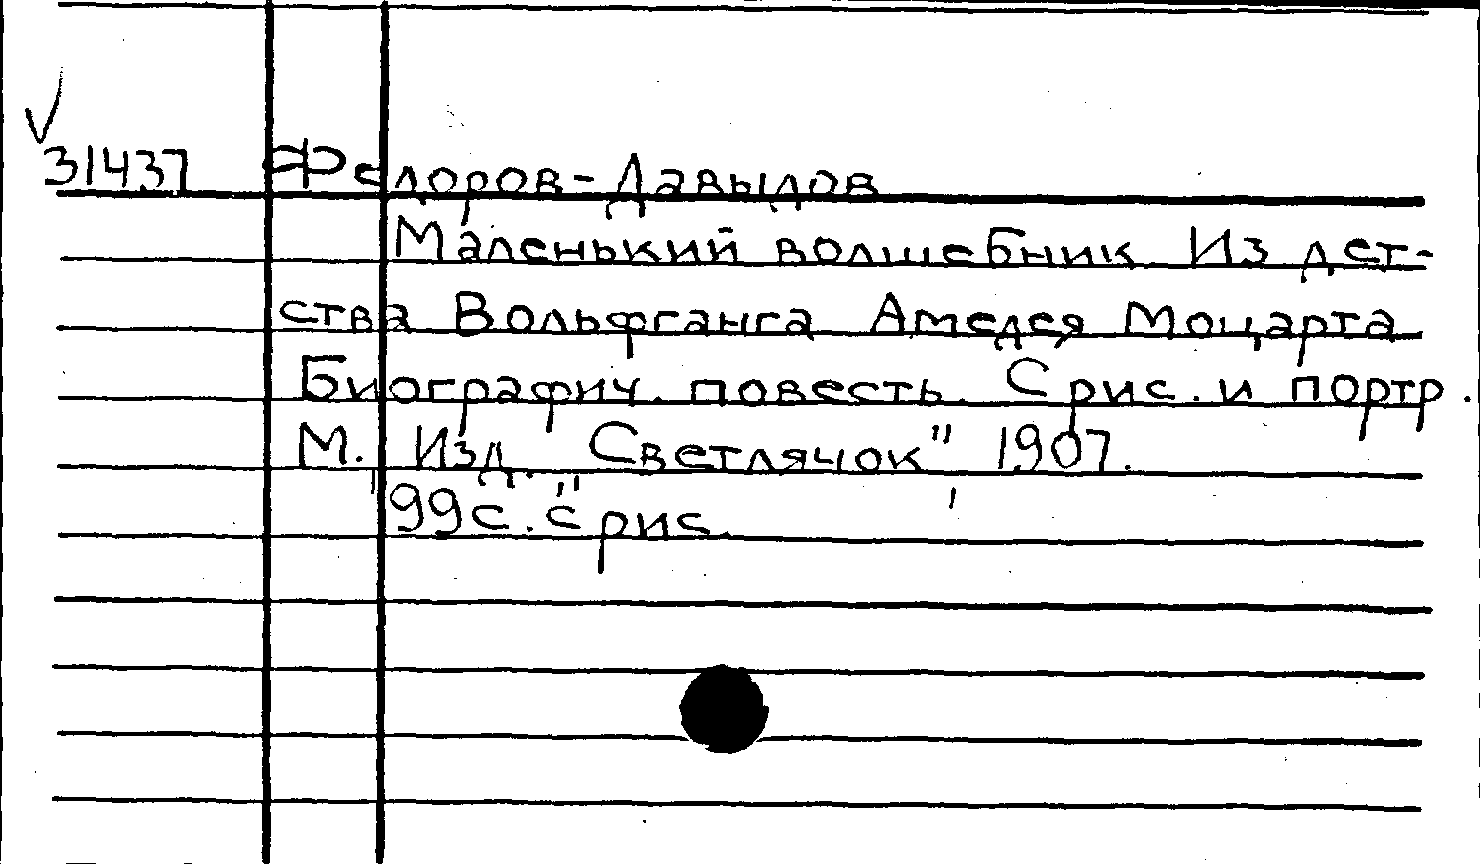 31437 Федоров-Давыдов
Маленький волшебник Из дет-
ства Вольфганга Амедея Моцарта
Биографич. повесть. С рис. и портр.
М. Изд. "Светлячок" 1907.
99с. с рис.